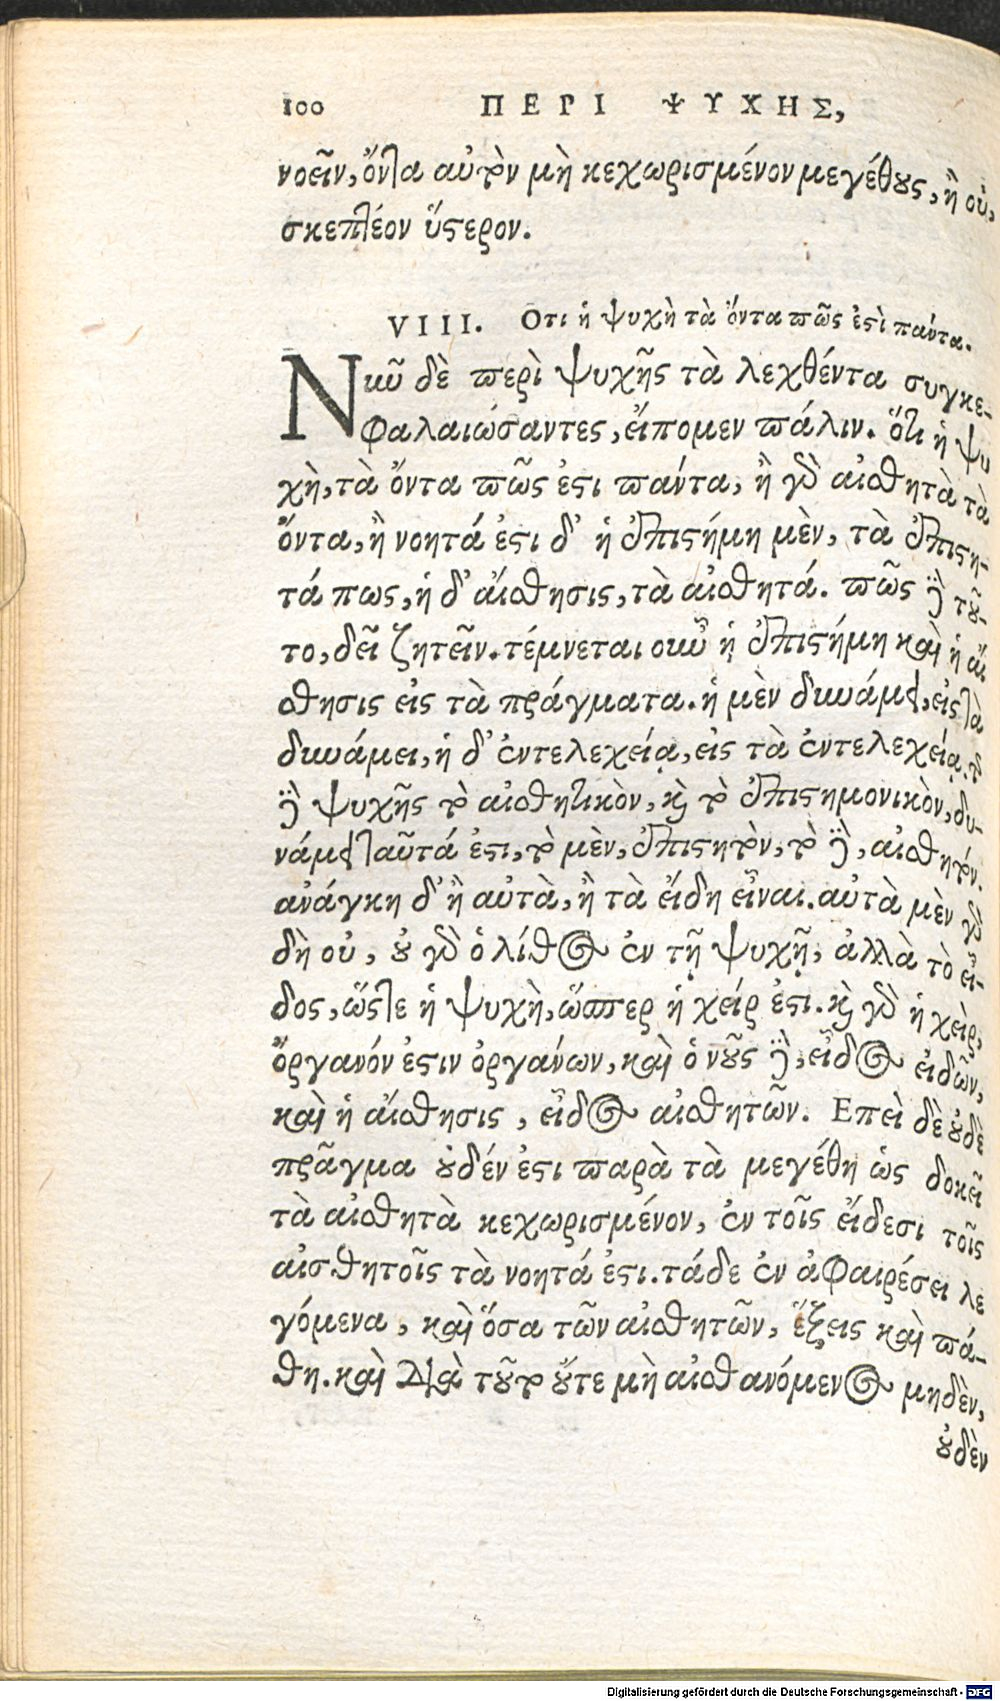 100 ΠΕΡΙ ΨΥΧΗΣ,
νοεῖν, ὄντα αὐτὸν μὴ κεχωρισμένον μεγέθους, ἢ οὐ,
σκεπτέον ὕστερον.
VIII. Οτι ἡ ψυχὴ τὰ ὄντα πῶς ἐστὶ πάντα.
Νυῦ δὲ περὶ ψυχῆς τὰ λεχθέντα συγκε-
φαλαιώσαντες, εἴπομεν πάλιν. ὅτι ἡ ψυ
χὴ, τὰ ὄντα πῶς ἐστι πάντα, ἢ γὰρ αἰσθητὰ τὰ
ὄντα, ἢ νοητά ἐστι δ' ἡ ἐπιστήμη μὲν, τὰ ἐπιστη-
τά πως, ἡ δ' αἴσθησις, τὰ αἰσθητά. πῶς δὲ τοῦ-
το, δεῖ ζητεῖν. τέμνεται οὖν ἡ ἐπιστήμη καὶ ἡ αἴ
σθησις εἰς τὰ πράγματα. ἡ μὲν δυνάμει, εἰς τὰ
δυνάμει, ἡ δ' ἐντελεχείᾳ, εἰς τὰ ἐντελεχείᾳ. τῆς
δὲ ψυχῆς τὸ αἰσθητικὸν, καὶ τὸ ἐπιστημονικὸν, δυ-
νάμει ταῦτά ἐστι, τὸ μὲν, ἐπιστητὸν, τὸ δὲ, αἰσθητόν.
ἀνάγκη δ' ἢ αὐτὰ, ἢ τὰ εἴδη εἶναι. αὐτὰ μὲν γὰρ
δὴ οὐ, οὐ γὰρ ὁ λίθος ἐν τῇ ψυχῇ, ἀλλὰ τὸ εἶ-
δος, ὥστε ἡ ψυχὴ, ὥσπερ ἡ χείρ ἐστι. καὶ γὰρ ἡ χεὶρ,
ὄργανόν ἐστιν ὀργάνων, καὶ ὁ νοῦς δὲ, εἶδος εἰδῶν,
καὶ ἡ αἴσθησις, εἶδος αἰσθητῶν. Επεὶ δὲ οὐδὲ
πρᾶγμα οὐδέν ἐστι παρὰ τὰ μεγέθη ὡς δοκεῖ
τὰ αἰσθητὰ κεχωρισμένον, ἐν τοῖς εἴδεσι τοῖς
αἰσθητοῖς τὰ νοητά ἐστι. τάδε ἐν ἀφαιρέσει λε
γόμενα, καὶ ὅσα τῶν αἰσθητῶν, ἕξεις καὶ πά-
θη. καὶ διὰ τοῦτο οὔτε μὴ αἰσθανόμενος μηδὲν,
οὐδὲν
Digitalisierung gefördert durch die Deutsche Forschungsgemeinschaft - DFG